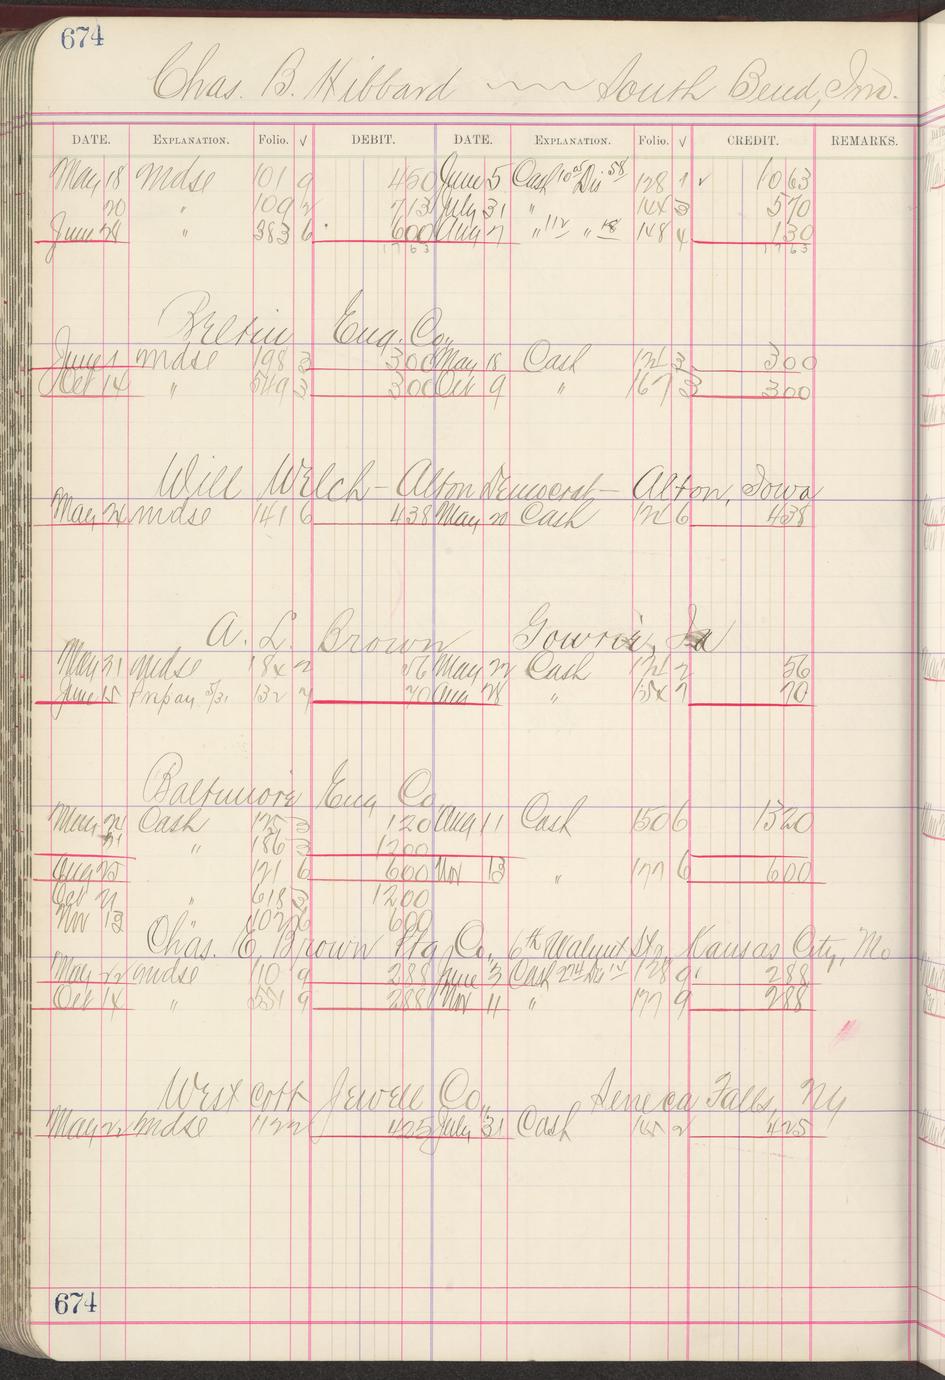 674
Chas. B. Hibbard South Bend, Ind.
DATE. EXPLANATION. Folio. √ DEBIT. DATE. EXPLANATION. Folio. √ CREDIT. REMARKS.
May 18 Mdse 101 9 450 June 5 Cash 10 05 Dis 58 128 1 √ 10 63
20 " 109 2 713 July 31 " 144 3 5 70
June 24 " 383 6 600 Aug 7 " 112 " 18 148 4 1 30
17 63 17 63
Eng. Co.
June 1 Mdse 198 3 300 May 18 Cash 121 3 300
Oct 14 " 549 3 300 Oct 9 " 167 3 300
Will Welch - Alton Democrat - Alton, Iowa
May 24 Mdse 141 6 438 May 20 Cash 121 6 438
A. L. Brown Gowrie, Ia
May 31 Mdse 184 2 56 May 22 Cash 121 2 56
June 15 Prepay 5/31 132 7 70 Aug 28 " 154 7 70
Baltimore Eng Co
May 21 Cash 125 3 120 Aug 11 Cash 150 6 1320
31 " 186 3 1200
Aug 25 121 6 600 Nov 13 " 177 6 600
Oct 21 " 618 3 1200
Nov 13 " 402 6 600
Chas. E. Brown Ptg Co., 6th Walnut Sts, Kansas City, Mo
May 22 Mdse 110 9 288 June 3 Cash 274 Dis 14 128 9 288
Oct 14 " 551 9 288 Nov 11 " 177 9 288
Westcott Jewell Co., Seneca Falls, Ny
May 22 Mdse 112 2 425 July 31 Cash 145 2 425
674